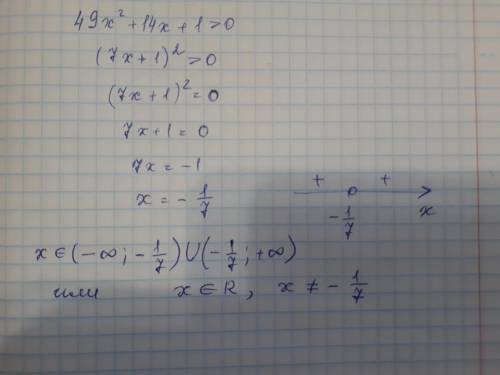 49x² + 14x + 1 > 0
(7x + 1)² > 0
(7x + 1)² = 0
7x + 1 = 0
7x = -1
x = - 1/7
+ +
- 1/7 x
x ∈ (-∞; - 1/7) ∪ (- 1/7; +∞)
или x ∈ R, x ≠ - 1/7